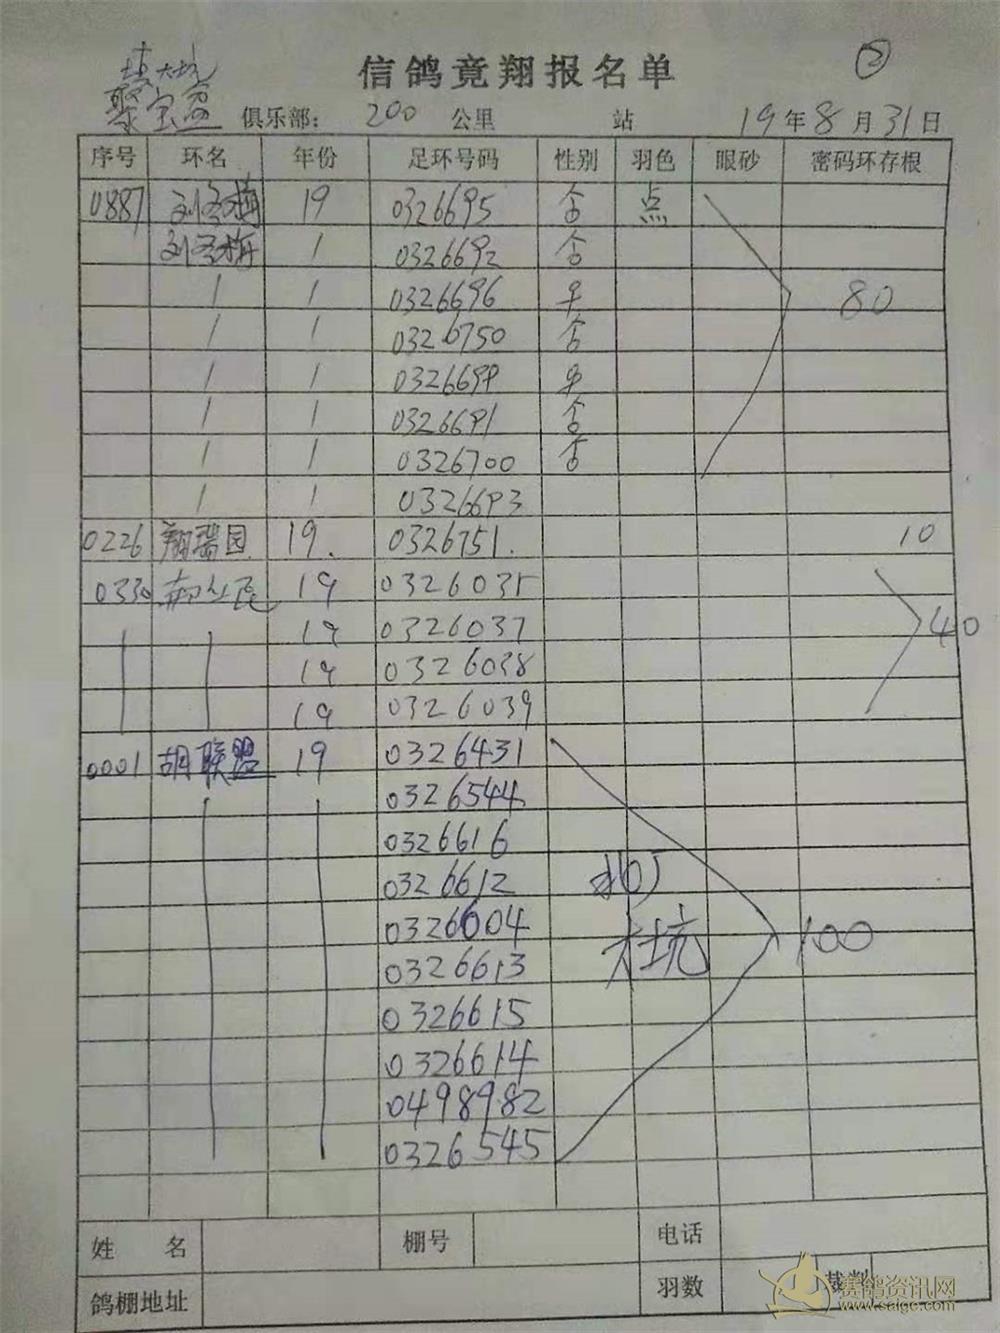 信鸽竟翔报名单 ②
聚宝盆 俱乐部： 200 公里 站 19 年 8 月 31 日
序号 环名 年份 足环号码 性别 羽色 眼砂 密码环存根
0887 刘冬梅 19 0326695 否 点
刘冬梅 / 0326692 否
/ / 0326696 早 80
/ / 0326750 否
/ / 0326699 早
/ / 0326691 否
/ / 0326700 否
/ / 0326693
0226 翔瑞园 19. 0326751. 10
0330 19 0326035
19 0326037 40
19 0326038
19 0326039
0001 胡联盟 19 0326431
0326544
0326616
0326612
0326604 大坑 100
0326613
0326615
0326614
0498982
0326545
姓 名 棚号 电话
鸽棚地址 羽数 裁判
赛鸽资讯网
www.saige.com